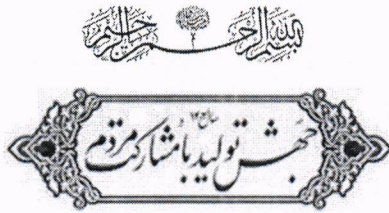 بسم الله الرحمن الرحیم
جهش تولید با مشارکت مردم